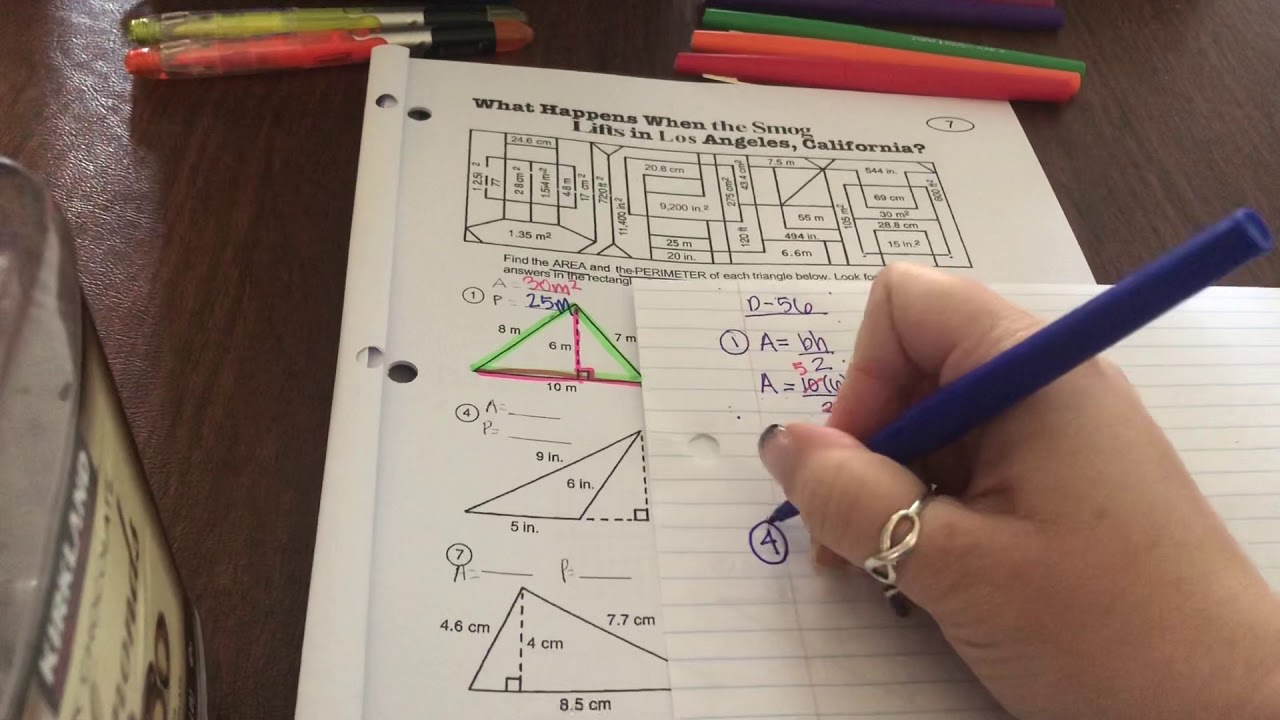 What Happens When the Smog
Lifts in Los Angeles, California?
7
24.6 cm
77
28 cm²
1.54 m²
4.8 m
17 cm²
1.35 m²
720 ft²
11,400 in.²
20.8 cm
9,200 in.²
25 m
20 in.
275 cm²
43.4 cm²
120 ft
7.5 m
55 m
494 in.
6.6m
105 m²
544 in.
69 cm
30 m²
28.8 cm
15 in.²
600 ft²
Find the AREA and the PERIMETER of each triangle below. Look for
answers in the rectangl
1
A = 30m²
P = 25m
8 m
6 m
7 m
10 m
4
A=
P=
9 in.
6 in.
5 in.
7
A=
P=
4.6 cm
4 cm
7.7 cm
8.5 cm
D-56
1 A = bh
2
5
A = 10(6
2
4
KIRKLAND